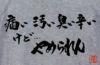 痛い 汚い 臭い 辛い
けど… やめられん